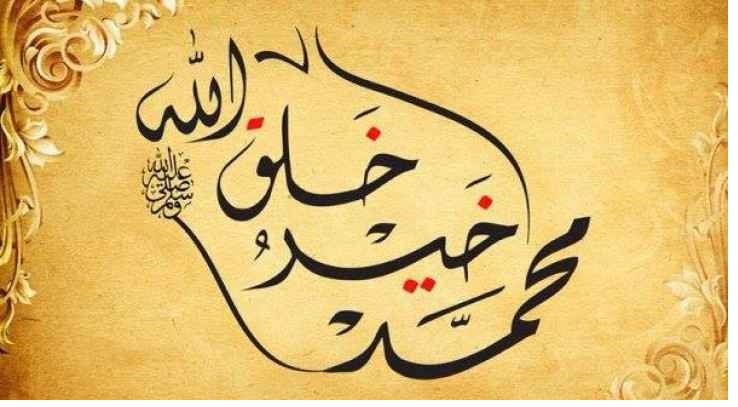 محمد
خيرُ
خَلق
الله
صلى الله عليه وسلم